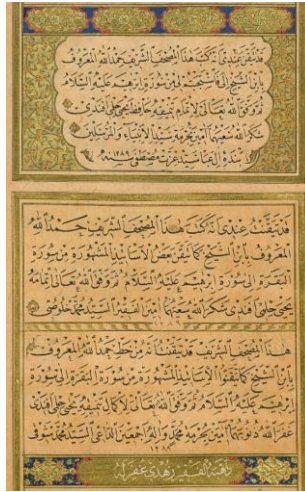 قد تيقن عندى ان كتب هذا المصحف الشريف حمد الله المعروف
بابن الشيخ الى
ثم وفق الله تعالى لاتمام حافظ يحيى حلمى افندى
شكر الله سعيهما آمين بحرمة سيد الانبياء والمرسلين
سنه ١٢٨٩
قد تيقنت عندى ان كتب هذا المصحف الشريف حمد الله
المعروف بابن الشيخ كما تيقن بعض الاساتيد المشهوره من سورة
البقرة الى سورة ابرهيم عليه السلام ثم وفق الله تعالى اتمامه
يحيى حلمى افندى شكر الله سعيهما امين الفقير السيد محمد خلوصى
هذا المصحف الشريف قد تيقنت انه من خط حمد الله المعروف
بابن الشيخ كما تيقنوا الاساتيد المشهورة من سورة البقرة الى سورة
ابرهيم عليه السلام ثم وفق الله تعالى لاكمال يحيى حلمى افندى
غفر الله ذنوبهما امين بحرمة محمد واله اجمعين الداعى السيد محمد شوقى
ذهبه الفقير زهدى غفر له